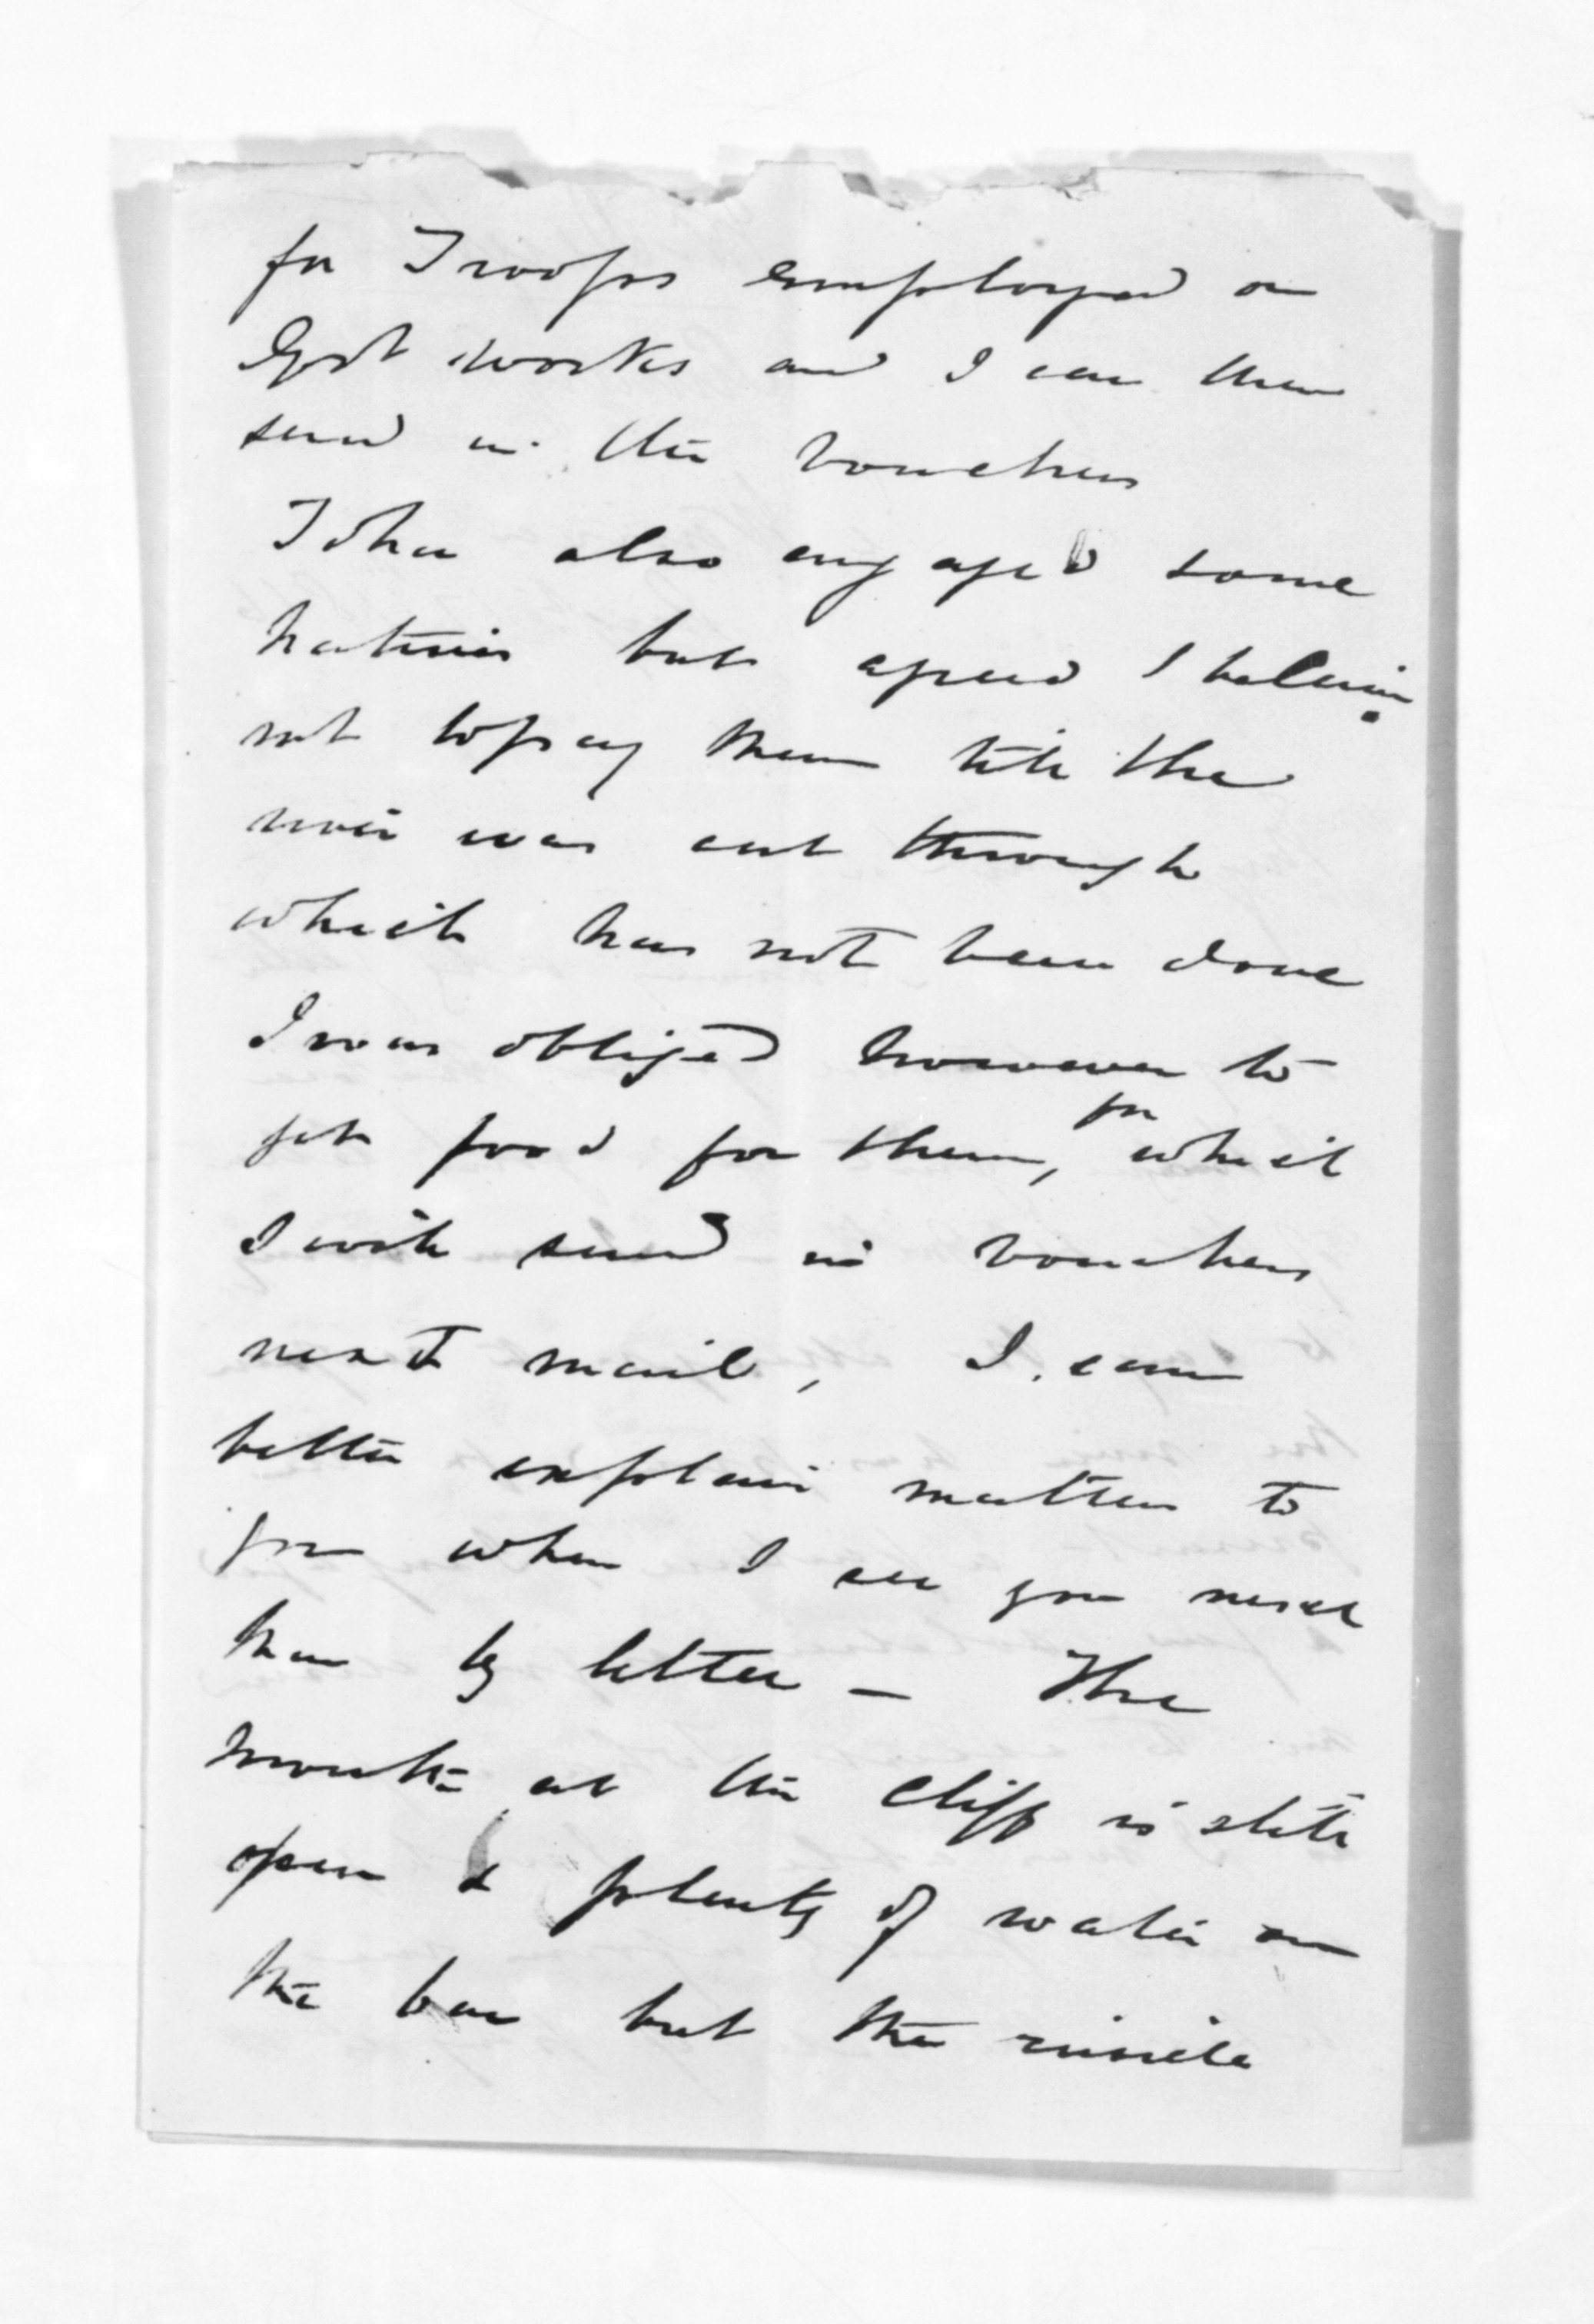 for Troops employed on
Govt works and I can then
send in the vouchers
also engaged some
natives but agreed I believe
not to pay them till the
was cut through
which has not been done
I was obliged however to
get food for them, for which
I will send in vouchers
next mail, I can
better explain matters to
you when I see you next
than by letter — The
mouth at the Cliff is still
open & plenty of water on
the bar but the inside